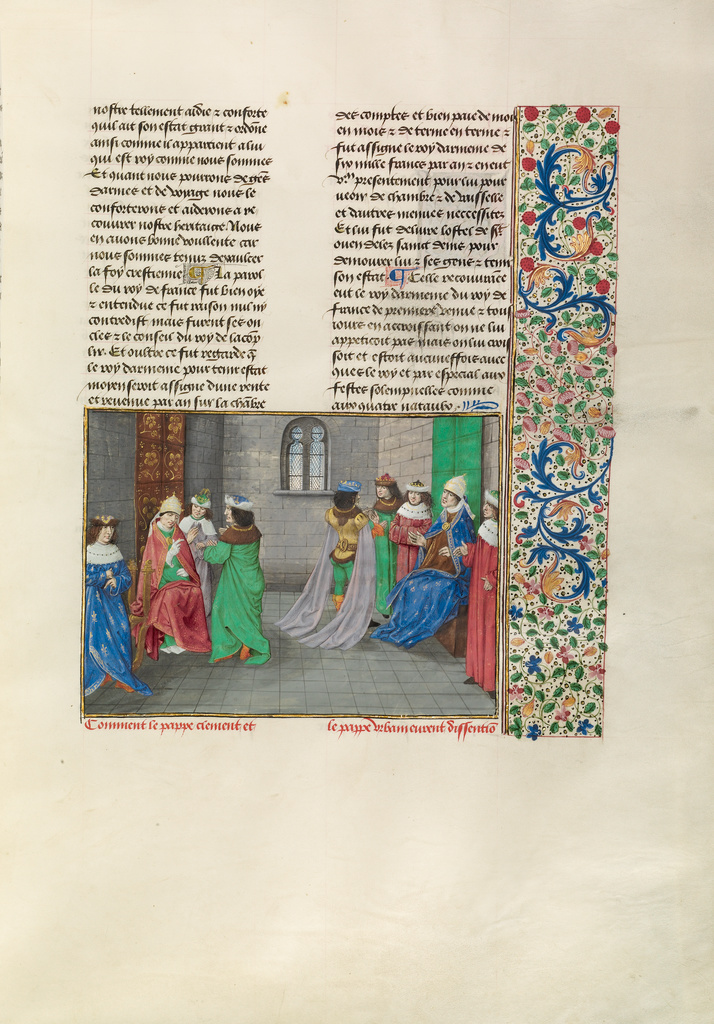 nostre tellement aidie ⁊ conforte
quil ait son estat grant ⁊ ordōne
ainsi comme il appartient a lui
qui est roy comme nous sommes
Et quant nous pourrons de gēs
darmes et de voyage nous le
conforterons et aiderons a re
couurer nostre heritaige. Nous
en auons bonne voullente car
nous sommes tenuz dexaulcer
la foy crestienne ¶ La parol
le du roy de france fut bien oye
⁊ entendue ce fut raison nul ny
contredist mais furent ses on
cles ⁊ le conseil du roy de lacōp
lir. Et oultre ce fut regarde q̄
le roy darmenie pour tenir estat
moyen seroit assigne dune rente
et reuenue par an sur la chābre
des comptes et bien paie de moix
en moix ⁊ de terme en terme ⁊
fut assigne le roy darmenie de
six mille francs par an ⁊ en eut
v.ᵐ presentement pour lui pour
ueoir de chambre ⁊ de vaisselle
et dautres menues neccessitez
Et lui fut deliure lostel de sēt
ouen delez saint denis pour
demourer lui ⁊ ses gens ⁊ tenir
son estat ¶ Celle recouurance
eut le roy darmenie du roy de
france de premiere venue ⁊ tous
iours en accroissant on ne lui
appeticoit pas mais on lui crois
soit et estoit aucuneffois auec
ques le roy et par especial aux
festes solempnelles comme
aux quatre nataulx.
Comment le pappe clement et
le pappe vrbain eurent dissentiō